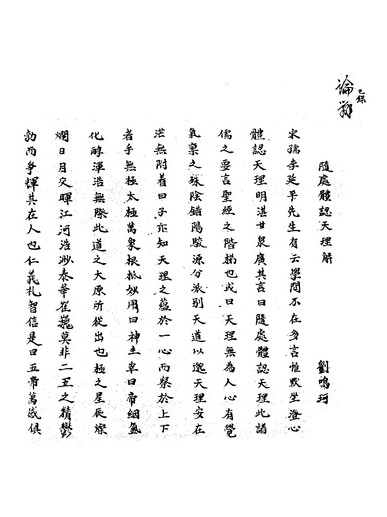 已錄
論辯
隨處體認天理解
劉鳴珂
宋儒李延平先生有云學問不在多言惟默坐澄心
體認天理明湛甘泉廣其言曰隨處體認天理此諸
儒之要言聖經之階梯也或曰天理無為人心有覺
氣稟之殊陰錯陽駁源分派別天道以邈天理安在
茫無附着曰子亦知天理之蘊於一心而察於上下
者乎無極太極萬象根柢妙用曰神主宰曰帝絪氳
化醇渾浩無際此道之大原所從出也極之星辰燦
爛日月交暉江河浩渺泰華崔巍莫非二五之精鬱
勃而爭輝其在人也仁義礼智信是曰五常萬感俱